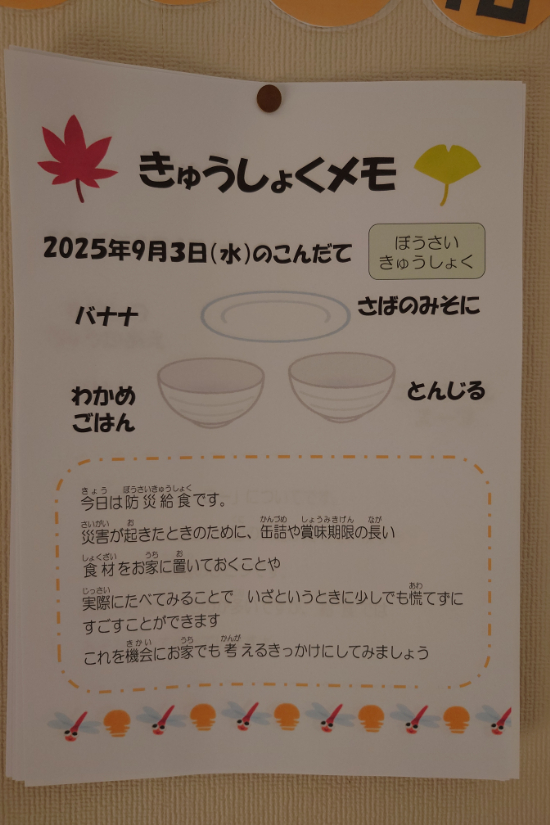 きゅうしょくメモ
2025年9月3日(水)のこんだて
ぼうさい
きゅうしょく
バナナ
さばのみそに
わかめ
ごはん
とんじる
今日は防災給食です。
災害が起きたときのために、缶詰や賞味期限の長い
食材をお家に置いておくことや
実際にたべてみることで　いざというときに少しでも慌てずに
すごすことができます
これを機会にお家でも考えるきっかけにしてみましょう